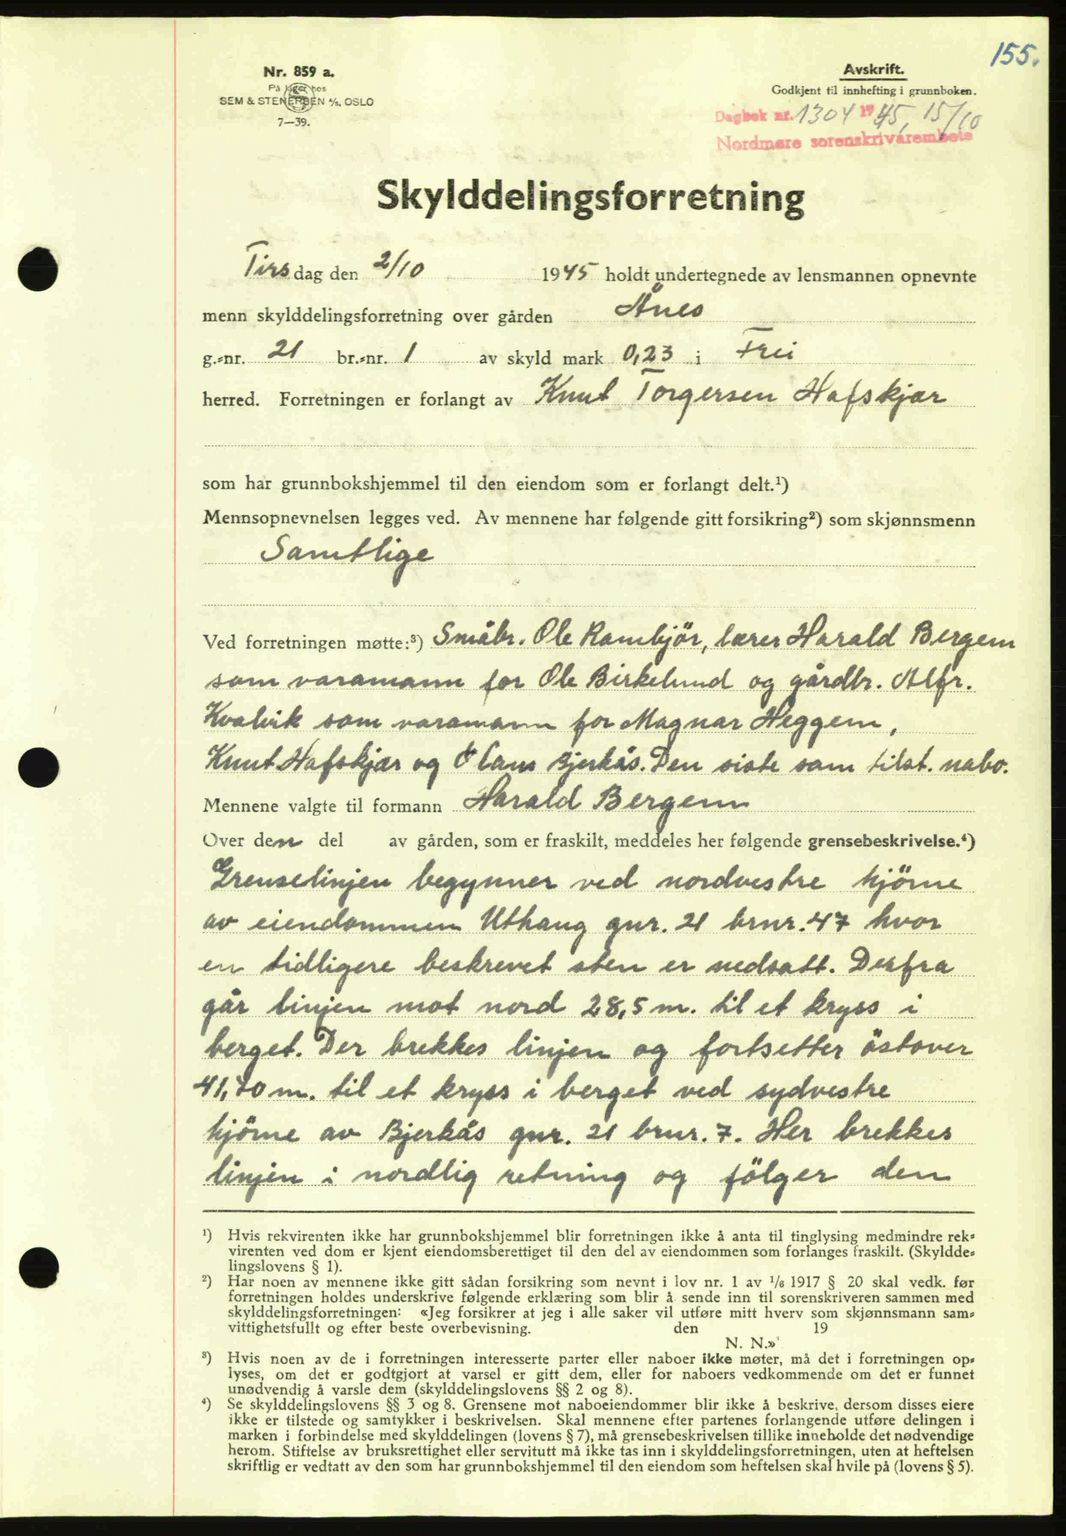 155.
Nr. 859 a.
På lager hos
SEM & STENERSEN A/S, OSLO
7—39.
Avskrift.
Godkjent til innhefting i grunnboken.
Dagbok nr. 1304 1945, 15/10
Nordmøre sorenskriverembete
Skylddelingsforretning
Tirsdag den 2/10 1945 holdt undertegnede av lensmannen opnevnte
menn skylddelingsforretning over gården Ånes
g.-nr. 21 br.-nr. 1 av skyld mark 0,23 i Frei
herred. Forretningen er forlangt av Knut Torgersen Hafskjær
som har grunnbokshjemmel til den eiendom som er forlangt delt.¹)
Mennsopnevnelsen legges ved. Av mennene har følgende gitt forsikring²) som skjønnsmenn
Samtlige
Ved forretningen møtte:³) Småbr. Ole Rambjör, lærer Harald Bergem
som varamann for Ole Birkelund og gårdbr. Alfr.
Kvalvik som varamann for Magnar Heggem,
Knut Hafskjær og Claus Bjerkås. Den siste som tilst. nabo.
Mennene valgte til formann Harald Bergem
Over den del av gården, som er fraskilt, meddeles her følgende grensebeskrivelse.⁴)
Grenselinjen begynner ved nordvestre hjörne
av eiendommen Uthaug gnr. 21 brnr. 47 hvor
en tidligere beskrevet sten er nedsatt. Derfra
går linjen mot nord 28,5 m. til et kryss i
berget. Der brekkes linjen og fortsetter östover
41,70 m. til et kryss i berget ved sydvestre
hjörne av Bjerkås gnr. 21 brnr. 7. Her brekkes
linjen i nordlig retning og fölger den
¹) Hvis rekvirenten ikke har grunnbokshjemmel blir forretningen ikke å anta til tinglysing medmindre rek-
virenten ved dom er kjent eiendomsberettiget til den del av eiendommen som forlanges fraskilt. (Skyldde-
lingslovens § 1).
²) Har noen av mennene ikke gitt sådan forsikring som nevnt i lov nr. 1 av 1/6 1917 § 20 skal vedk. før
forretningen holdes underskrive følgende erklæring som blir å sende inn til sorenskriveren sammen med
skylddelingsforretningen: «Jeg forsikrer at jeg i alle saker vil utføre mitt hverv som skjønnsmann sam-
vittighetsfullt og efter beste overbevisning. den 19
N. N.»
³) Hvis noen av de i forretningen interesserte parter eller naboer ikke møter, må det i forretningen op-
lyses, om det er godtgjort at varsel er gitt dem, eller for naboers vedkommende om det er funnet
unødvendig å varsle dem (skylddelingslovens §§ 2 og 8).
⁴) Se skylddelingslovens §§ 3 og 8. Grensene mot naboeiendommer blir ikke å beskrive, dersom disses eiere
ikke er tilstede og samtykker i beskrivelsen. Skal mennene efter partenes forlangende utføre delingen i
marken i forbindelse med skylddelingen (lovens § 7), må grensebeskrivelsen tillike inneholde det nødvendige
herom. Stiftelse av bruksrettighet eller servitutt må ikke tas inn i skylddelingsforretningen, uten at heftelsen
skriftlig er vedtatt av den som har grunnbokshjemmel til den eiendom som heftelsen skal hvile på (lovens § 5).